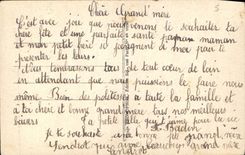 Chère Grand'mère
C'est avec joie que nous venons te souhaiter ta
chère fête et une parfaite santé maman
et mon petit frère se joignent à moi pour te
présenter les leurs.
Nous t'embrassons tous de tout cœur de loin
en attendant que nous puissions le faire nous
même Bien des politesses à toute la famille et
à toi chère et bonne grand'mère nos meilleurs
baisers
La petite fille qui t'aime pour la vie
je te souhaite une bonne grand'mère